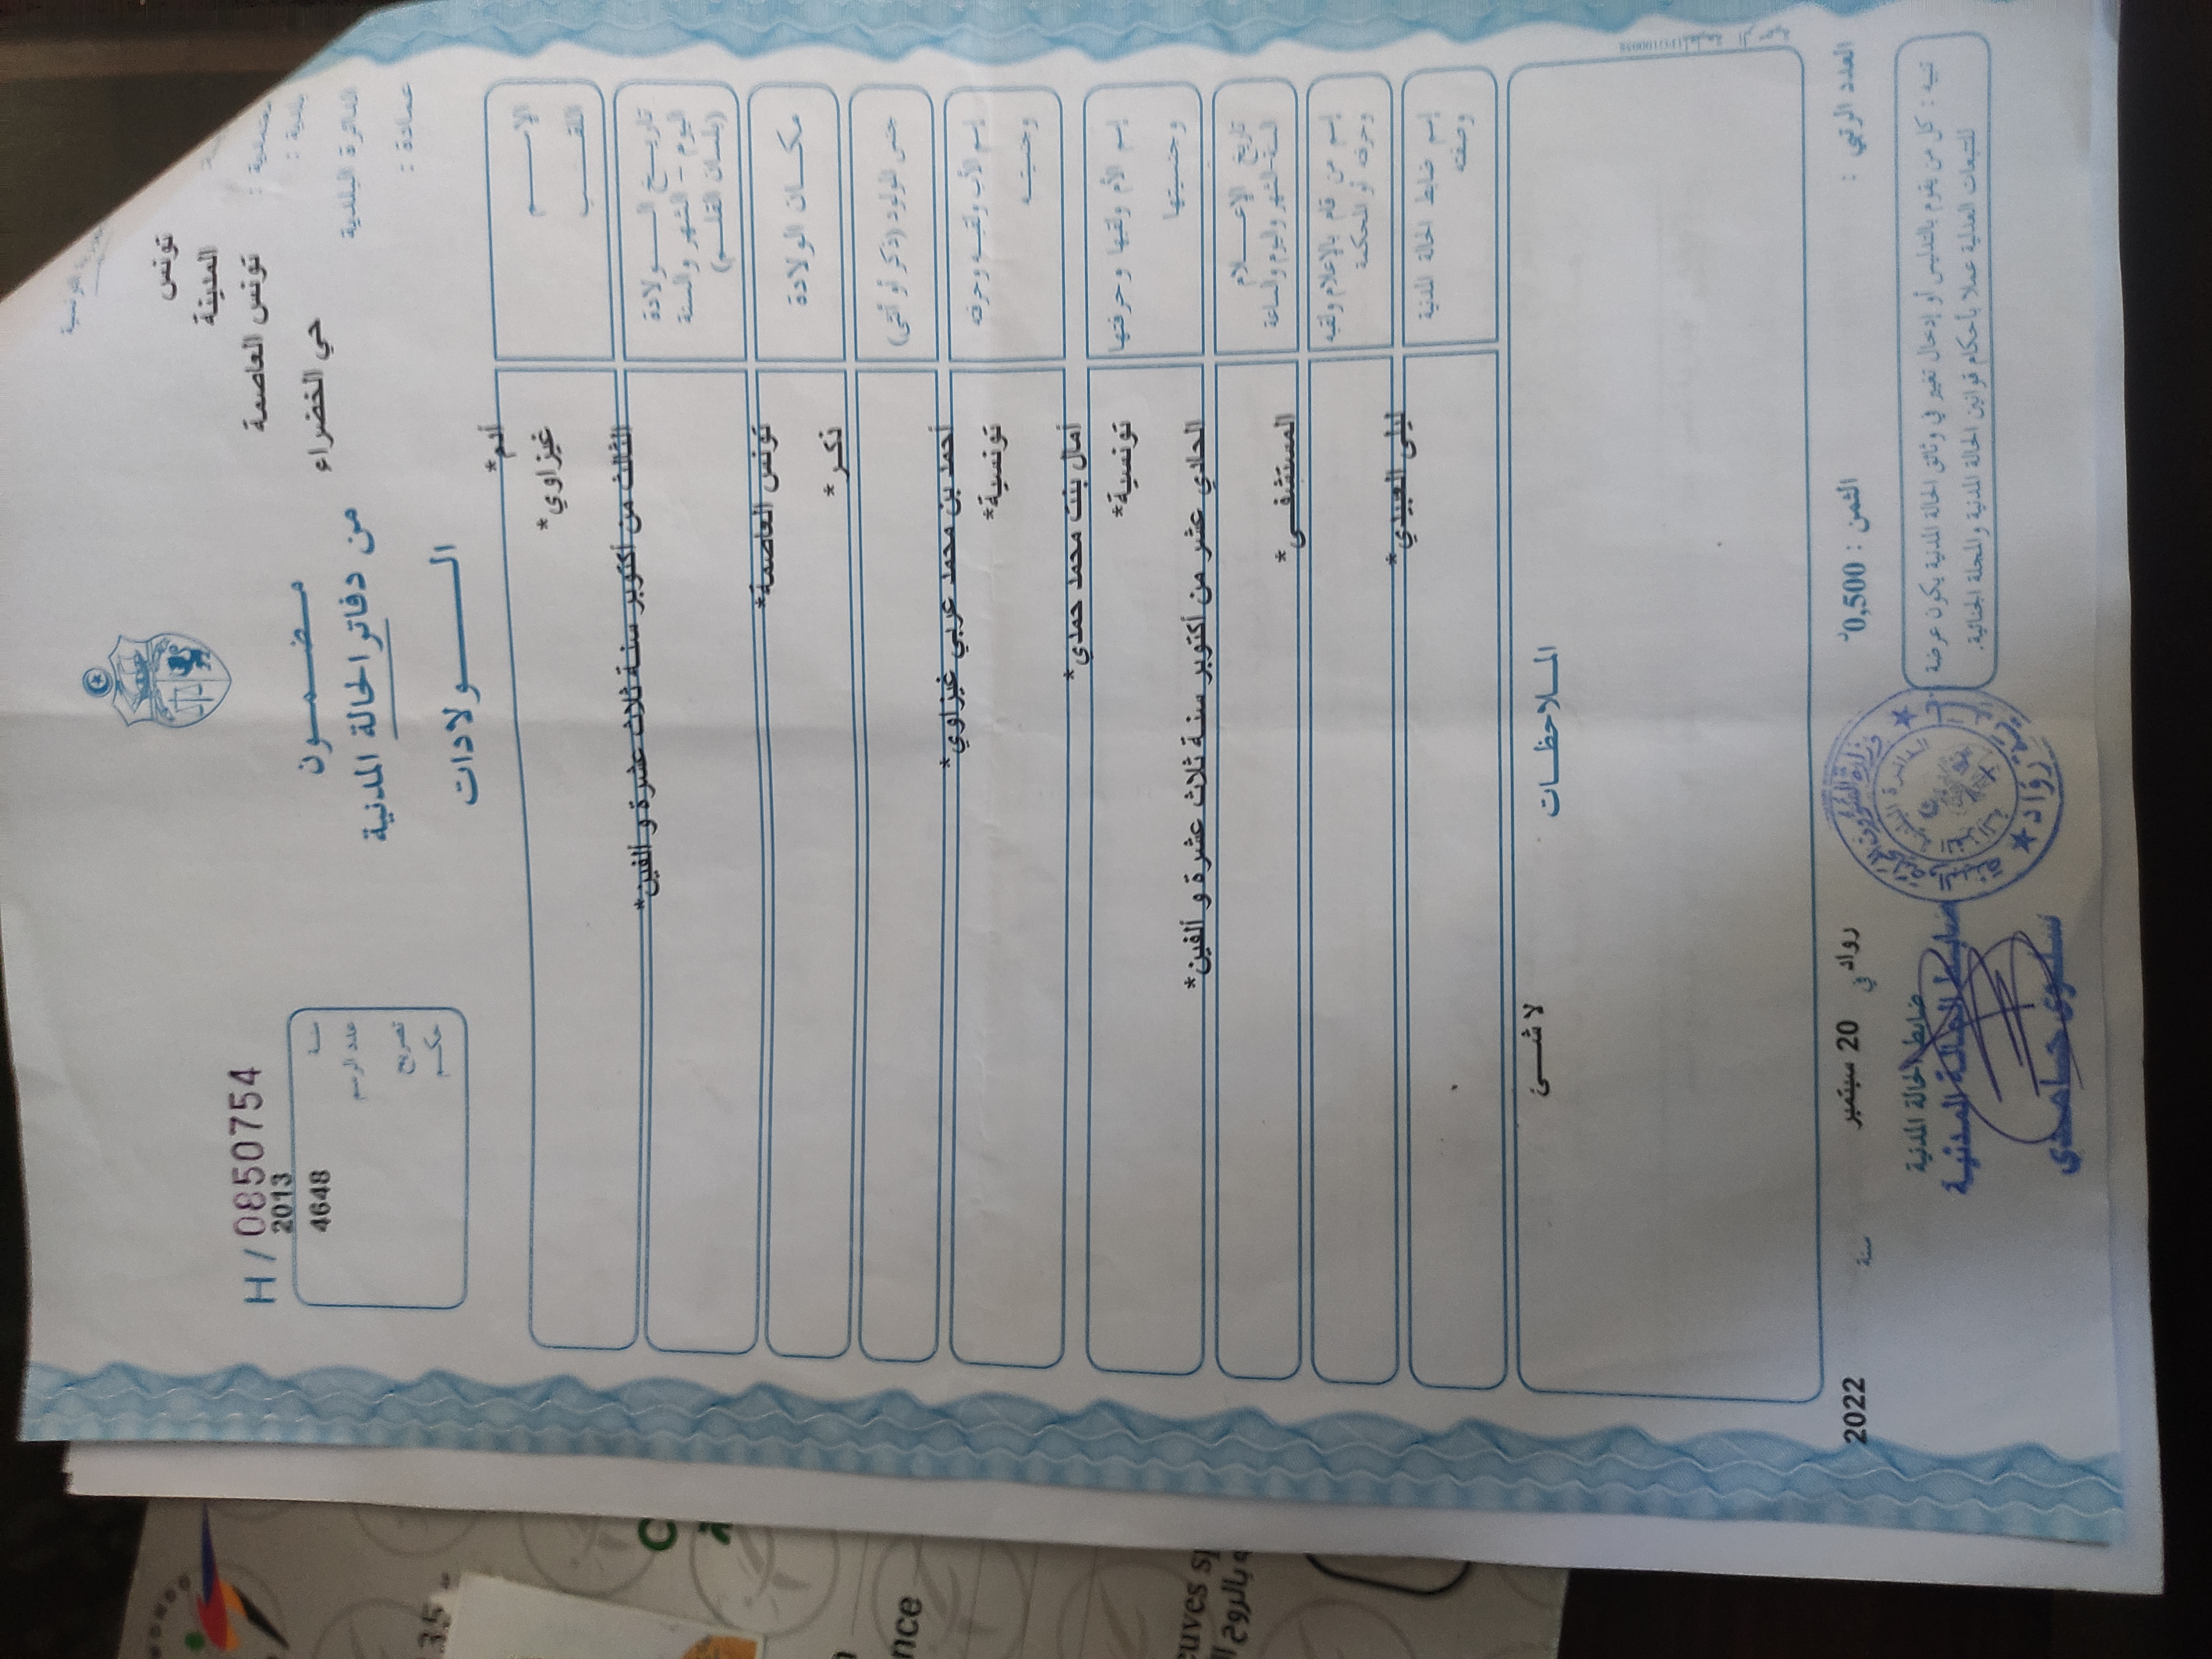 الجمهورية التونسية
تونس
المدينة
بلدية : تونس العاصمة
الدائرة البلدية حي الخضراء
عمادة :
مضمون
من دفاتر الحالة المدنية
الولادات
H / 08550754
سنة 2013
عدد الرسم 4648
تصريح
حكم
الاسم أدم*
اللقب غيزاوي*
تاريخ الولادة
اليوم - الشهر والسنة
(بلسان القلم)
الثالث من أكتوبر سنة ثلاث عشرة و ألفين*
مكان الولادة تونس العاصمة*
جنس المولود (ذكر أو أنثى) ذكر*
إسم الأب ولقبه وحرفته أحمد بن محمد عربي غيزاوي*
وجنسيته تونسية*
إسم الأم ولقبها وحرفتها أمال بنت محمد حمدي*
وجنسيتها تونسية*
تاريخ الإعلام
السنة-الشهر واليوم والساعة
الحادي عشر من أكتوبر سنة ثلاث عشرة و ألفين*
إسم من قام بالإعلام ولقبه
وحرفته أو المحكمة
المستشفى*
إسم ضابط الحالة المدنية
وصفته
ليلى العبيدي*
الملاحظات
لا شئ
العدد الرتبي : الثمن : 0,500د رواد في 20 سبتمبر سنة 2022
تنبيه : كل من يقوم بالتدليس أو إدخال تغيير في وثائق الحالة المدنية يكون عرضة
للتتبعات العدلية عملا بأحكام قوانين الحالة المدنية والمجلة الجنائية.
ضابط الحالة المدنية
ضابط الحالة المدنية
سلوى حامدي
رواد
nce